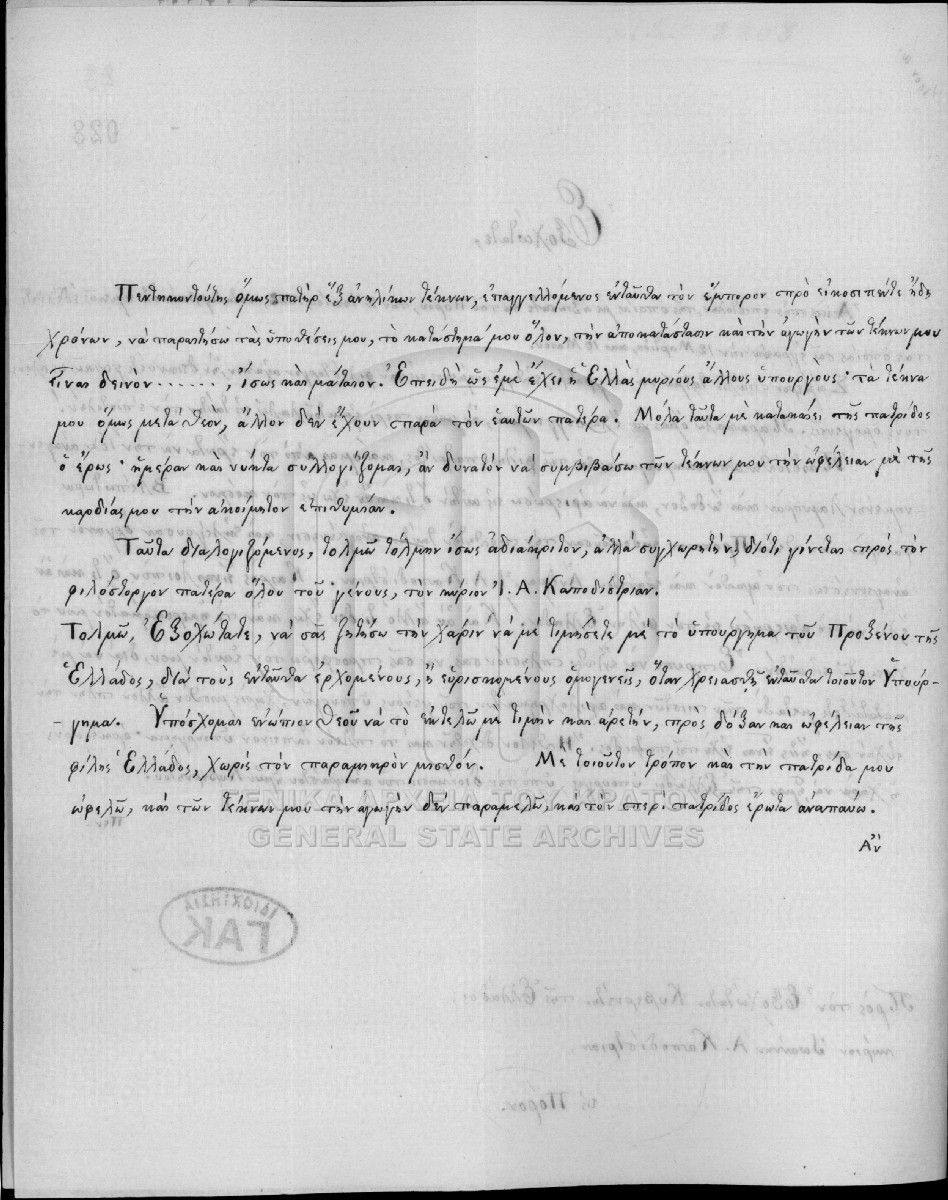 Πεντηκοντούτης ὅμως πατὴρ ἓξ ἀνηλίκων τέκνων, ἐπαγγελλόμενος ἐνταῦθα τὸν ἔμπορον πρὸ εἰκοσιπέντε ἤδη
χρόνων, νὰ παραιτήσω τὰς ὑποθέσεις μου, τὸ κατάστημά μου ὅλον, τὴν ἀποκατάστασιν καὶ τὴν ἀγωγὴν τῶν τέκνων μου
εἶναι δεινὸν ......., ἴσως καὶ μάταιον. Ἐπειδὴ ὡς ἐμὲ ἔχει ἡ Ἑλλὰς μυρίους ἄλλους ὑπουργοὺς· τὰ τέκνα
μου ὅμως μετὰ θεὸν, ἄλλον δὲν ἔχουν παρὰ τὸν ἑαυτῶν πατέρα. Μὅλα ταῦτα μὲ κατακαίει τῆς πατρίδος
ὁ ἔρως· ἡμέραν καὶ νύκτα συλλογίζομαι, ἂν δυνατὸν νὰ συμβιβάσω τῶν τέκνων μου τὴν ὠφέλειαν μὲ τῆς
καρδίας μου τὴν ἀκοίμητον ἐπιθυμίαν.
Ταῦτα διαλογιζόμενος, τολμῶ τόλμην ἴσως ἀδιάκριτον, ἀλλὰ συγχωρητὴν, διότι γίνεται πρὸς τὸν
φιλόστοργον πατέρα ὅλου τοῦ γένους, τὸν κύριον Ἰ. Α. Καποδίστριαν.
Τολμῶ, Ἐξοχώτατε, νὰ σᾶς ζητήσω τὴν χάριν νὰ μὲ τιμήσετε μὲ τὸ ὑπούργημα τοῦ Προξένου τῆς
Ἑλλάδος, διὰ τοὺς ἐνταῦθα ἐρχομένους, ἢ εὑρισκομένους ὁμογενεῖς, ὅταν χρειασθῇ ἐνταῦθα τοιοῦτον Ὑπούρ-
-γημα. Ὑπόσχομαι ἐνώπιον θεοῦ νὰ τὸ ἐκτελῶ μὲ τιμὴν καὶ ἀρετὴν, πρὸς δόξαν καὶ ὠφέλειαν τῆς
φίλης Ἑλλάδος, χωρὶς τὸν παραμικρὸν μισθόν. Μὲ τοιοῦτον τρόπον καὶ τὴν πατρίδα μου
ὠφελῶ, καὶ τῶν τέκνων μου τὴν ἀγωγὴν δὲν παραμελῶ, καὶ τὸν περὶ πατρίδος ἔρωτα ἀναπαύω.
Ἂν
ΓΕΝΙΚΑ ΑΡΧΕΙΑ ΤΟΥ ΚΡΑΤΟΥΣ
GENERAL STATE ARCHIVES
ΙΔΙΟΚΤΗΣΙΑ
ΓΑΚ
028
Ἐξοχώτατε,
Πρὸς τὸν Ἐξοχώτατον Κυβερνήτην τῆς Ἑλλάδος,
κύριον Ἰωάννην Α. Καποδίστριαν,
εἰς Πόρον.